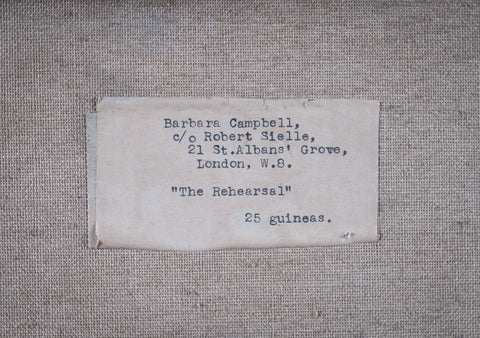 Barbara Campbell,
c/o Robert Sielle,
21 St.Albans' Grove,
London, W.8.
"The Rehearsal"
25 guineas.